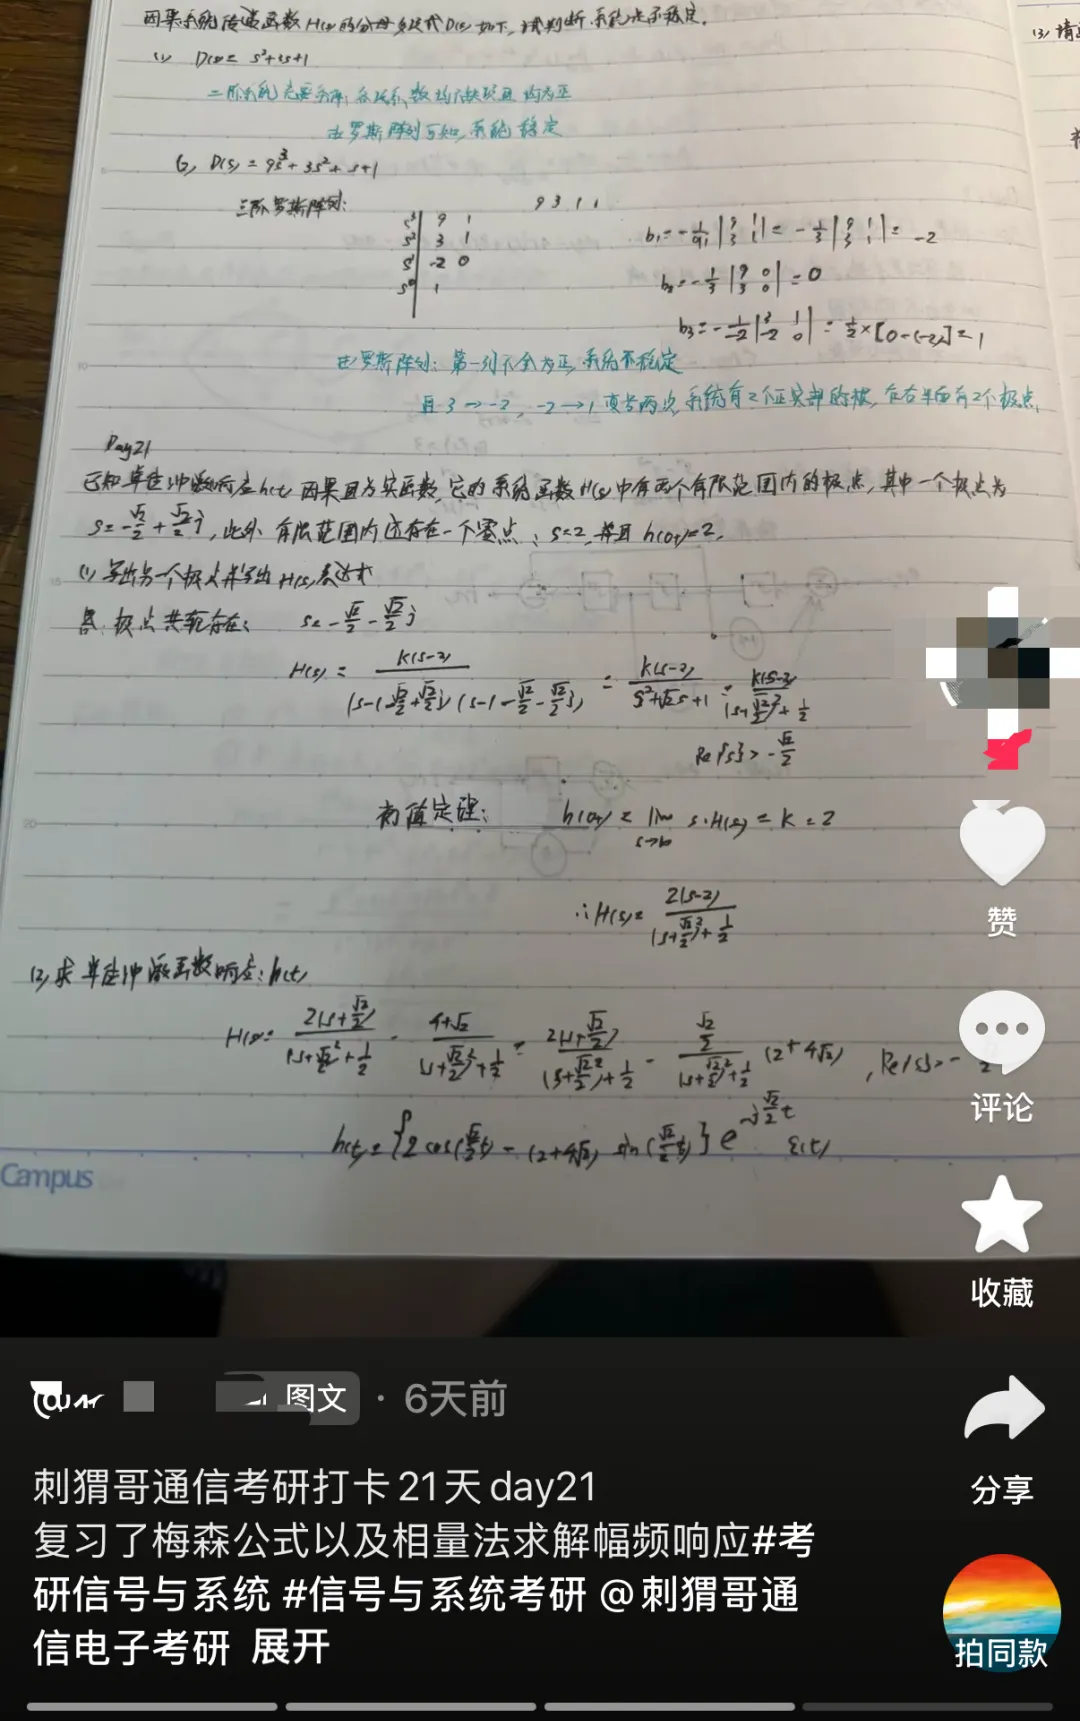 因果系统传递函数H(s)的分母多项式D(s)如下,试判断系统是否稳定.
(3) 请
D(s)= s²+3s+1
由罗斯阵列可知,系统稳定
D(s) = 9s³+3s²+s+1
三阶罗斯阵列: 9 3 1 1
s³ 9 1
s² 3 1
s¹ -2 0
s⁰ 1
b₁=-1/a₁|9 1 3 1|= -1/3|9 1 3 1|= -2
b₂=-1/3|9 0 3 0|=0
b₃=-1/-2|3 1 -2 0|= 1/2×[0-(-2)]=1
由罗斯阵列: 第一列不全为正,系统不稳定
且3→-2, -2→1 变号两次,系统有2个正实部的根,在右半面有2个极点.
Day21
已知单位冲激响应h(t)因果且为实函数,它的系统函数H(s)中有两个有限范围内的极点,其中一个极点为
s=-√2/2+√2/2j,此外有限范围内还存在一个零点:s=2,并且h(0+)=2.
(1)写出另一个极点并写出H(s)表达式
极点共轭存在: s=-√2/2-√2/2j
H(s)= K(s-2)/(s-(-√2/2+√2/2j))(s-(-√2/2-√2/2j)) = K(s-2)/s²+√2s+1 = K(s-2)/(s+√2/2)²+1/2
Re{s}>-√2/2
初值定理: h(0+)= lim s→∞ s·H(s)=K=2
∴H(s)= 2(s-2)/(s+√2/2)²+1/2
(2)求单位冲激函数响应:h(t)
H(s)= 2(s+√2/2)/(s+√2/2)²+1/2 - 4+√2/(s+√2/2)²+1/2 = 2(s+√2/2)/(s+√2/2)²+1/2 - √2/2/(s+√2/2)²+1/2 (2+4√2) ,Re{s}>-
h(t)={2cos(√2/2t)-(2+4√2)sin(√2/2t)}e ε(t)
Campus
赞
评论
收藏
分享
图文 · 6天前
刺猬哥通信考研打卡21天day21
复习了梅森公式以及相量法求解幅频响应#考
研信号与系统 #信号与系统考研 @刺猬哥通
信电子考研 展开
拍同款